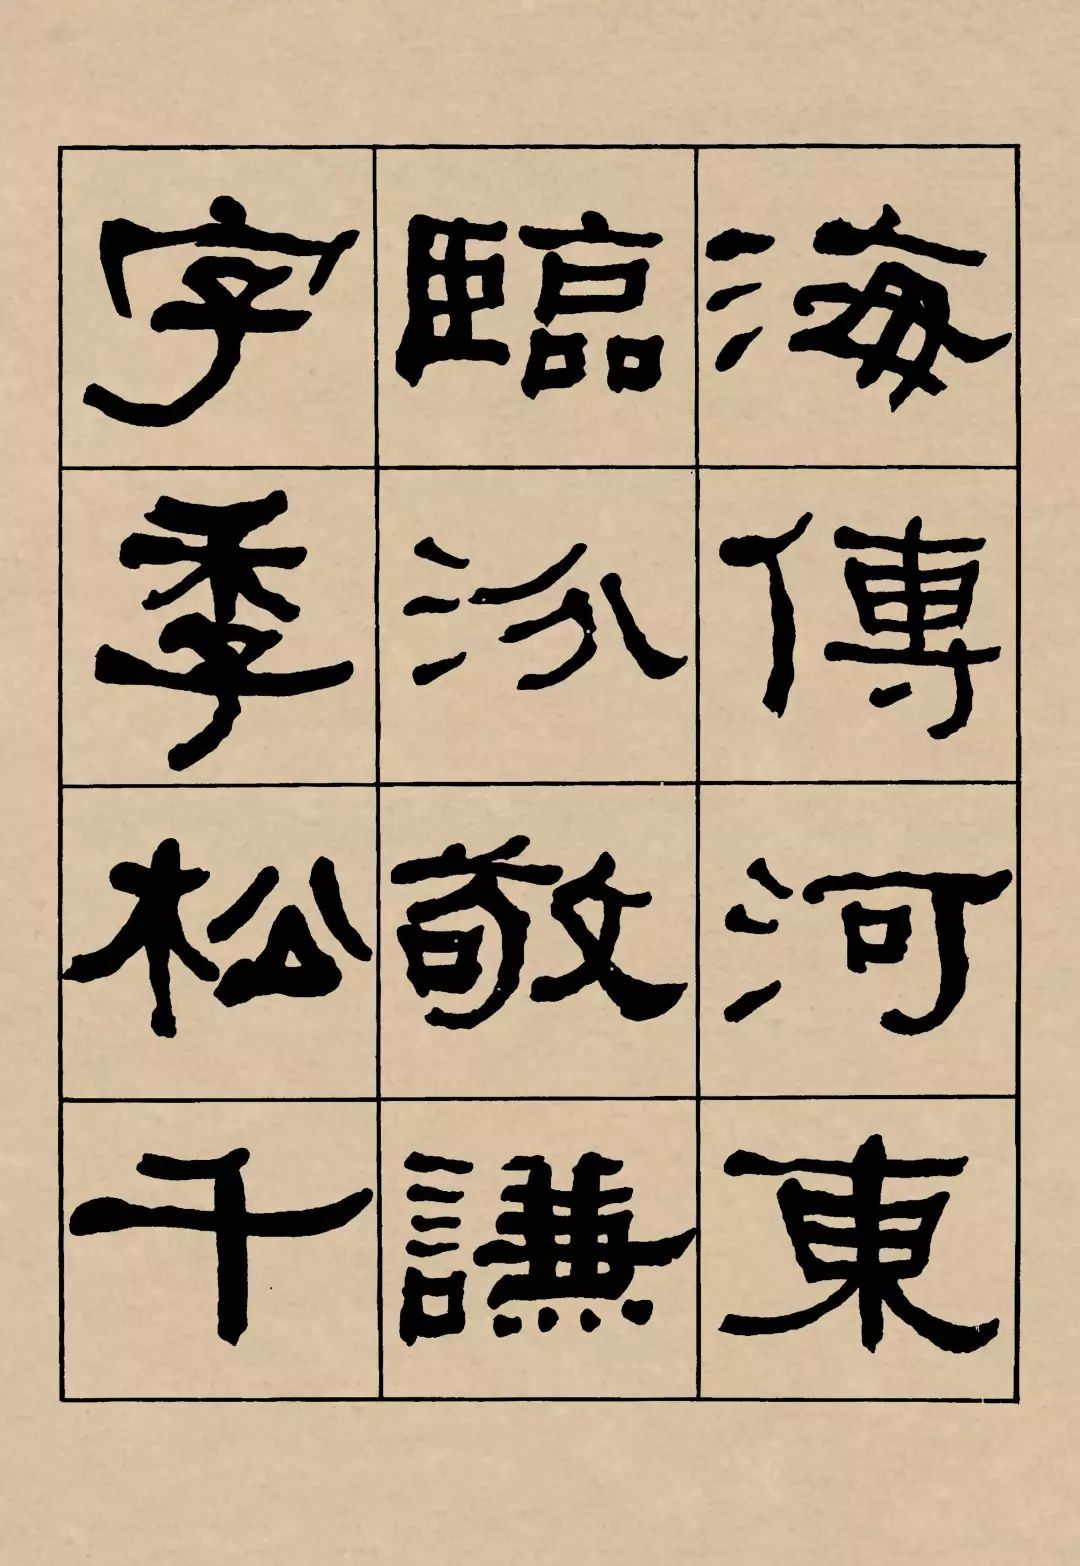 海傳河東
臨汾敬謙
字季松千